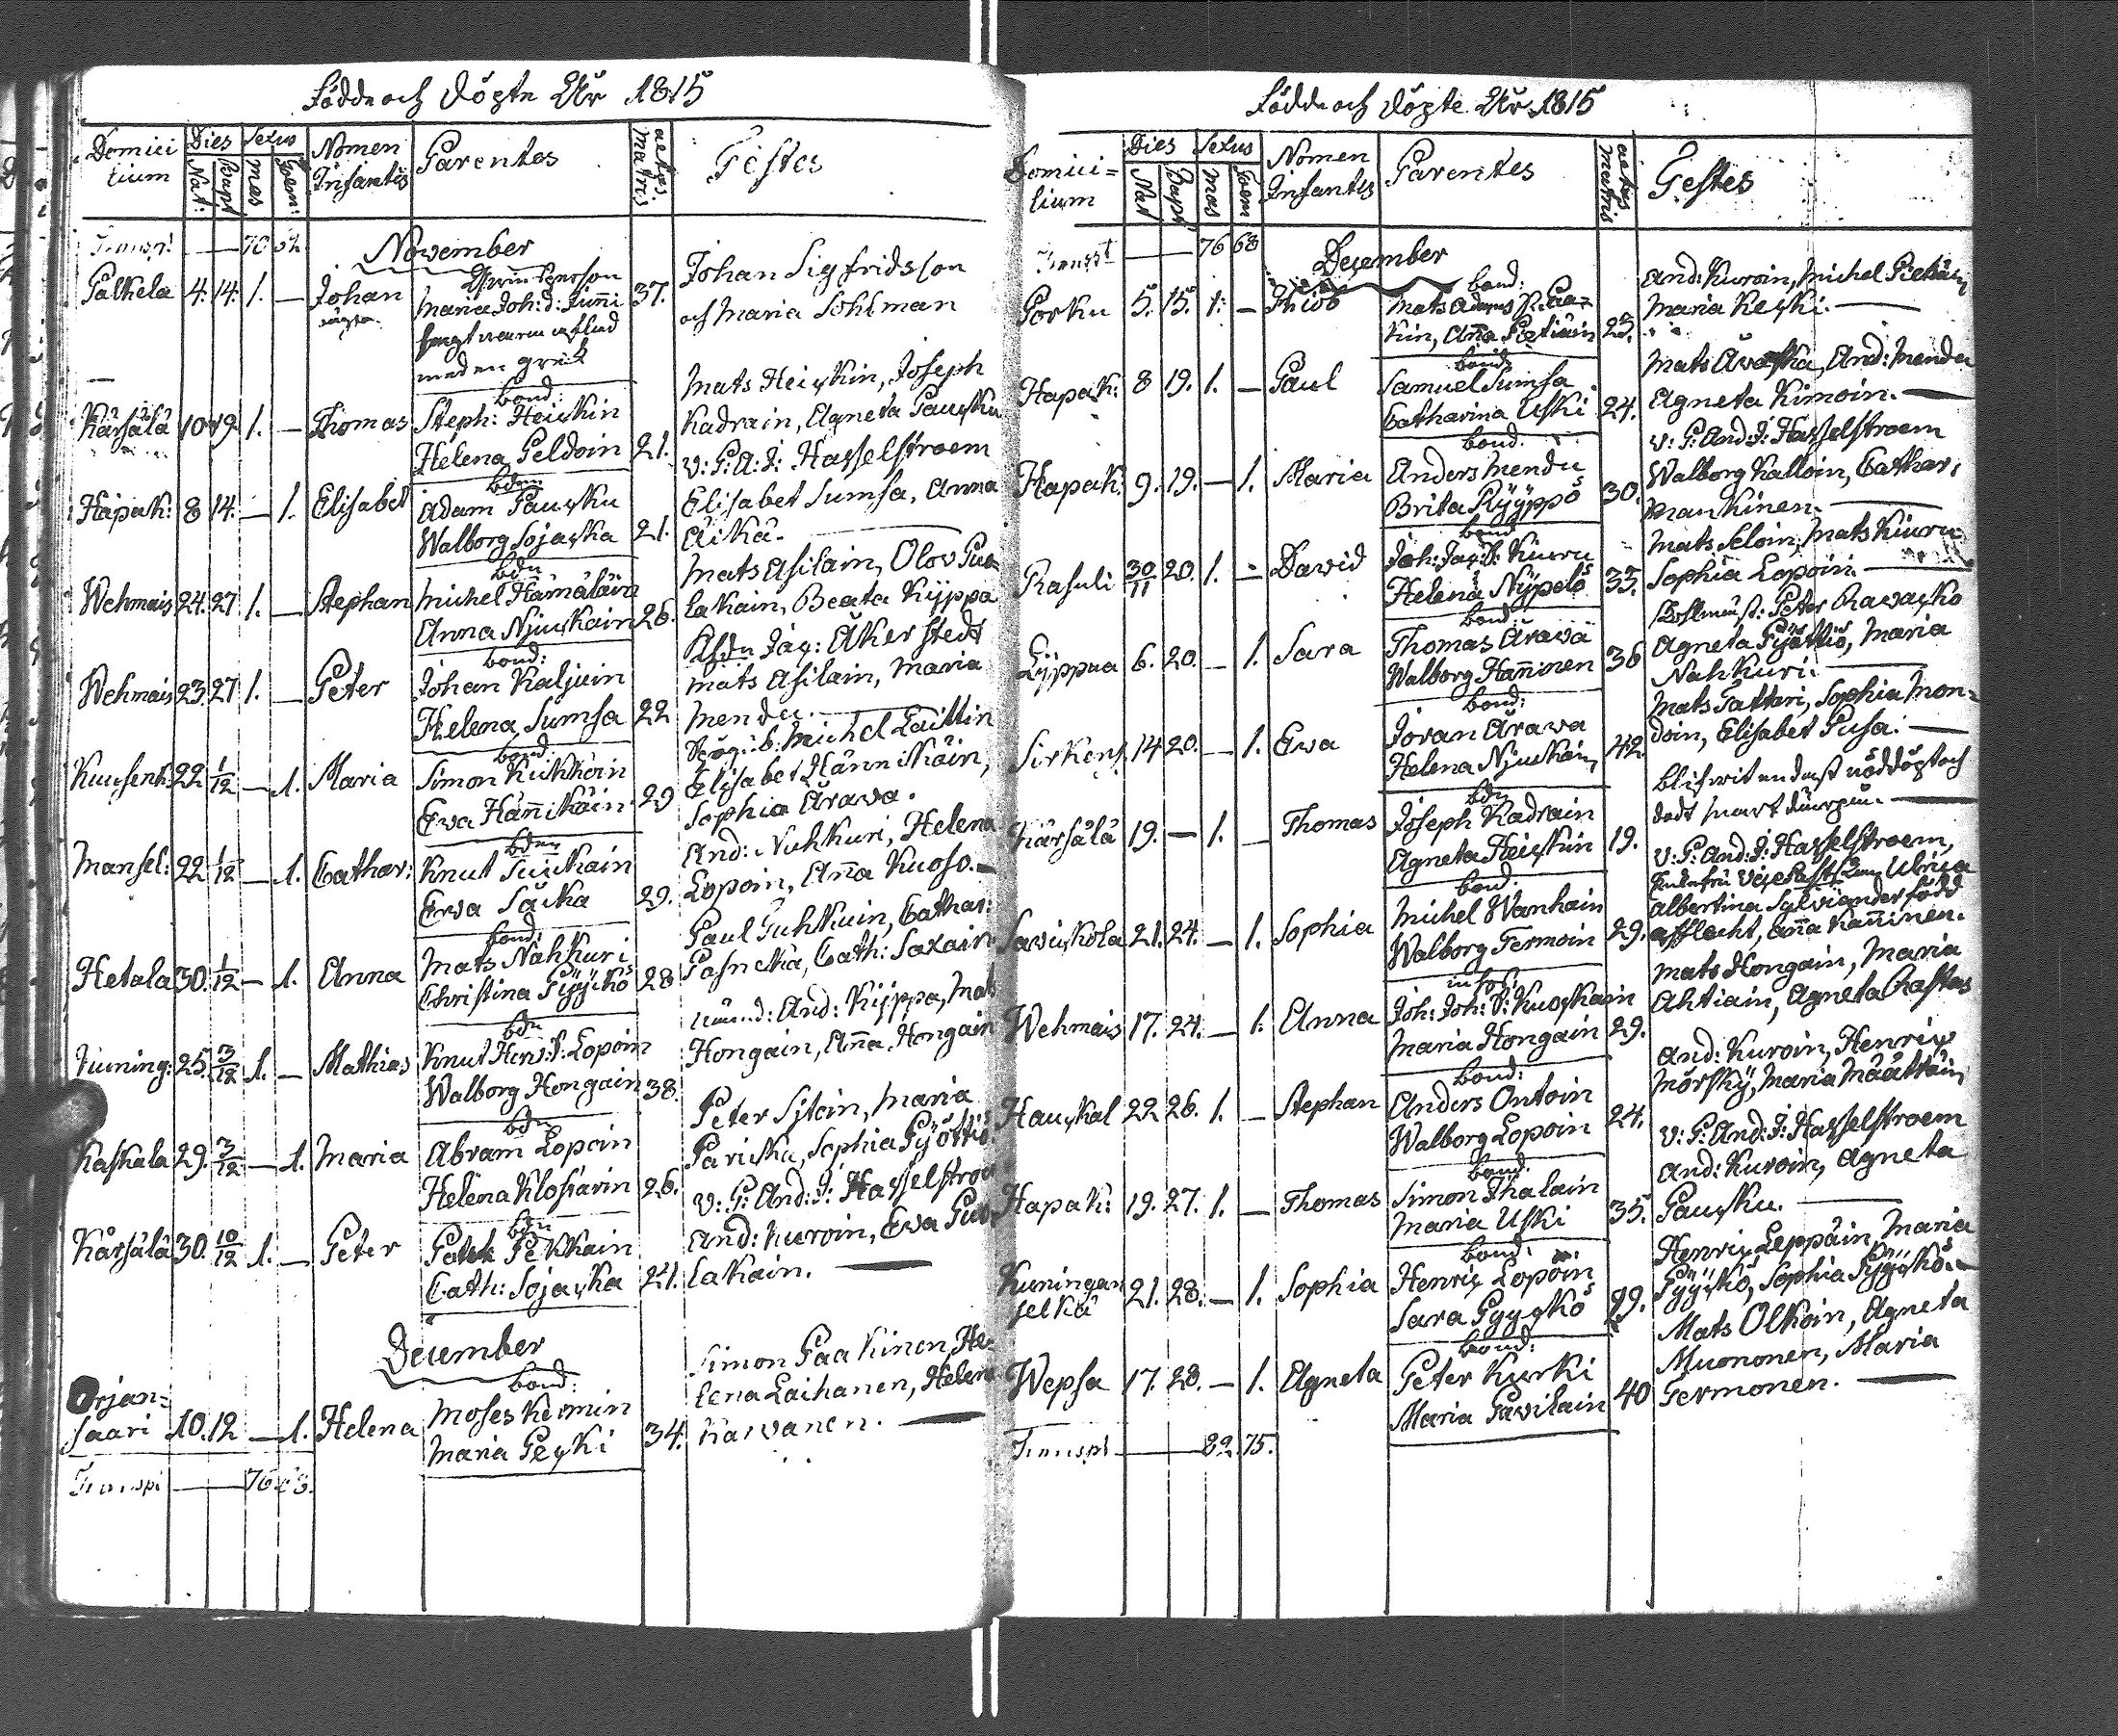 Födde och döpte År 1815
Domicilium Dies Nat: Bapt Sexus mas Foem: Nomen Infantis Parentes aetas matris Testes
Transpt — 70 62
November
Palkela 4. 14. 1. — Johan Maria Joh: d: Junni 37. Johan Sigfridsson
och Maria Sohlman
med en
Kärsälä 10 19 1. — Thomas bond: Steph: Heiskin Helena Peldoin 21. Mats Heiskin, Joseph
Kadrain, Agneta Pausku
Hapak: 8 14. — 1. Elisabet bdn Adam Pausku Walborg Sojaska 21. v: P: A: J: Hasselstroem
Elisabet Sumsa, Anna
Äikä.
Wehmais 24. 27 1. — Stephan bdn Michel Hämäläin Anna Njuskain 26. Mats Asilain, Olov Puslakain, Beata Kyppa
Wehmais 23. 27 1. — Peter bond: Johan Kaljuin Helena Sumsa 22 Jäg: Åkerstedt
Mats Asilain, Maria
Mendu.
Kuusenh: 22 1/12 — 1. Maria bond: Simon Kukkoin Ewa Hännikäin 29 Michel Laittin
Elisabet Hännikäin,
Sophia Ärawa.
Mansel: 22 1/12 — 1. Cathar: bdn Knut Suikain Ewa Säikä 29. And: Nuhkuri, Helena
Lopoin, Anna Kuoso.
Hetala 30. 1/12 — 1. Anna bond: Mats Nahkuri Christina Pÿÿskö 28 Paul Tuhkuin, Cathar:
Pasneka, Cath: Saxain
Kuning: 25. 3/12 1. — Mathias bdn Knut Hen: S: Lopoin Walborg Hongain 38. And: Kyppa, Mats
Hongain, Anna Hongain
Kaskala 29. 3/12 — 1. Maria bdn Abram Lopoin Helena Klosiarin 26. Peter Sjtoin, Maria
Pariska, Sophia Pyöttiö.
Kärsälä 30. 10/12 1. — Peter bdn Pekkain Cath: Sojaska 21. v: P: And: J: Hasselstroe
And: Kuroin, Ewa Puslakain.
December
Orjansaari 10. 12 — 1. Helena bond: Moses Kermin Maria Peski 34. Simon Paakinen, Helena Laihanen, Helena
Karvanen.
Transpt — 76 63.
Födde och döpte År 1815
Domicilium Dies Nat Bapt Sexus mas Foem Nomen Infantis Parentes aetas matris Testes
Transpt — 76 63
December
Porku 5. 15. 1. — bond: Mats Adams S: Paakin, Anna Pietiäin 23. And: Kuroin, Michel Pietiäin,
Maria Keski.
Hapak: 8 19. 1. — Paul bond: Samuel Sumsa Catharina Uski 24. Mats Awaska, And: Mendu
Agneta Kimoin.
Hapak: 9. 19. — 1. Maria bond: Anders Mendu Brita Ryÿppö 30. v: P: And: J: Hasselstroem
Walborg Kalloin, Cathar:
Mankinen.
Rasuli 30/11 20. 1. — David bond Joh: Jac: S: Kiuru Helena Nÿpelö 33. Mats Seloin, Mats Kiuru
Sophia Lopoin.
Lÿppua 6. 20. — 1. Sara bond: Thomas Ärawä Walborg Hanninen 36 Peter Rawasko
Agneta Pyöttiö, Maria
Nahkuri.
Sirkens 14 20. — 1. Ewa bond: Jöran Ärawa Helena Njuskain, 42 Mats Pattari, Sophia Mondoin, Elisabet Pusa.
Kärsälä 19. — 1. — Thomas bdn Joseph Kadrain Agneta Heiskin 19. nöddöpt och
Sawiskola 21. 24. — 1. Sophia bond Michel Wanhain Walborg Termoin 29. v: P: And: J: Hasselstroem,
Ulrica
Albertina Sylviander född
Afflecht, Anna Kanninen.
Wehmais 17. 24. — 1. Anna inhos: Joh: Joh: S: Kuoskain Maria Hongain 29. Mats Hongain, Maria
Ahtiain, Agneta Rastas
Hauskal 22 26. 1. — Stephan bond: Anders Ontoin Walborg Lopoin 24. And: Kuroin, Henric
Mörskÿ, Maria Määttäin
Hapak: 19. 27. 1. — Thomas bond: Simon Ihalain Maria Uski 35. v: P: And: J: Hasselstroem
And: Kuroin, Agneta
Pausku.
Kuninganselkä 21. 28. — 1. Sophia bond: Henric Lopoin Sara Pyyskö 29. Henric Leppäin, Maria
Pÿÿskö, Sophia Pÿÿskö.
Wepsa 17. 28. — 1. Agneta bond: Peter Kurki Maria Pavilain 40 Mats Olkoin, Agneta
Muononen, Maria
Termonen.
Transpt — 82. 75.